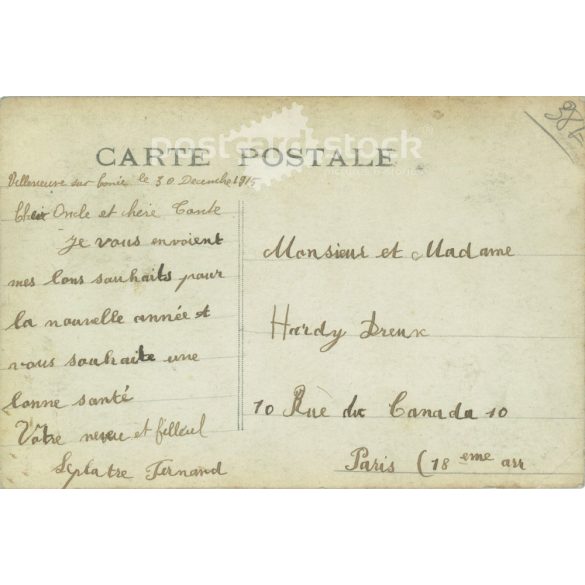 postcardstock
CARTE POSTALE
Villeneuve sur le 30 Decembre 1915
Cher Oncle et chère Tante
Je vous envoient
mes bons souhaits pour
la nouvelle année et
vous souhaite une
bonne santé
Vôtre neveu et filleul
Leplatre Fernand
Monsieur et Madame
Hardy Dreux
10 Rue du Canada 10
Paris (18 eme arr